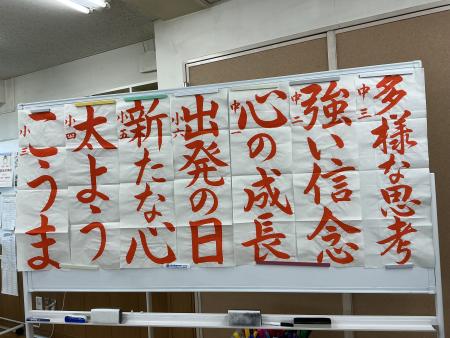 中三
多様な思考
中二
強い信念
中一
心の成長
小六
出発の日
小五
新たな心
小四
太よう
小三
こうま